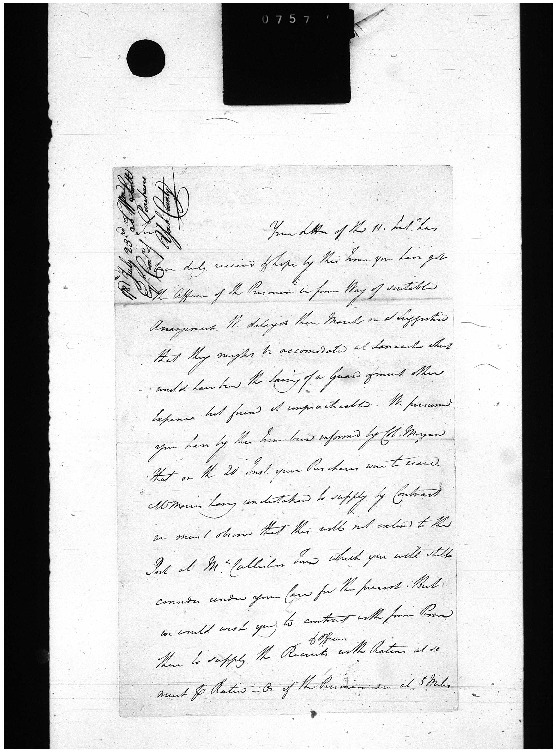 0757
Your letter of the 11. Inst. has
been duly received & hope by this time you have got
the Affairs of the Prisoners in some Way of suitable
Arrangement. We delayed their March on a Supposition
that they might be accomodated at Lancaster which
would have been the saving of a Guard & much other
Expence but found it impracticable. We presume
you have by this time been informed by Col. Morgan
that on the 20 Inst. your Purchases were to cease.
Mr. Morris having undertaken to supply by Contract
we must observe that this will not extend to the
Post at Mc.Callisters Town which you will still
consider under your Care for the present. But
we would wish you to contract with some Person
there to supply the Recruits & Officers with Rations at so
much Ration